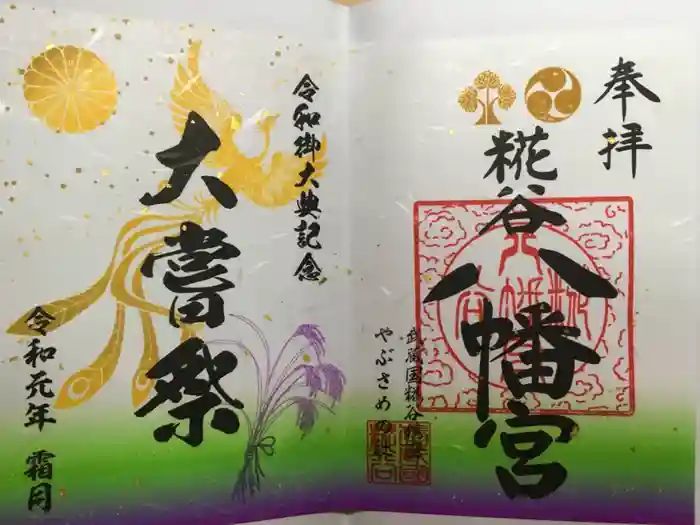 奉拝
糀谷
八幡宮
武蔵国糀谷
やぶさめの社
令和御大典記念
大嘗祭
令和元年 霜月